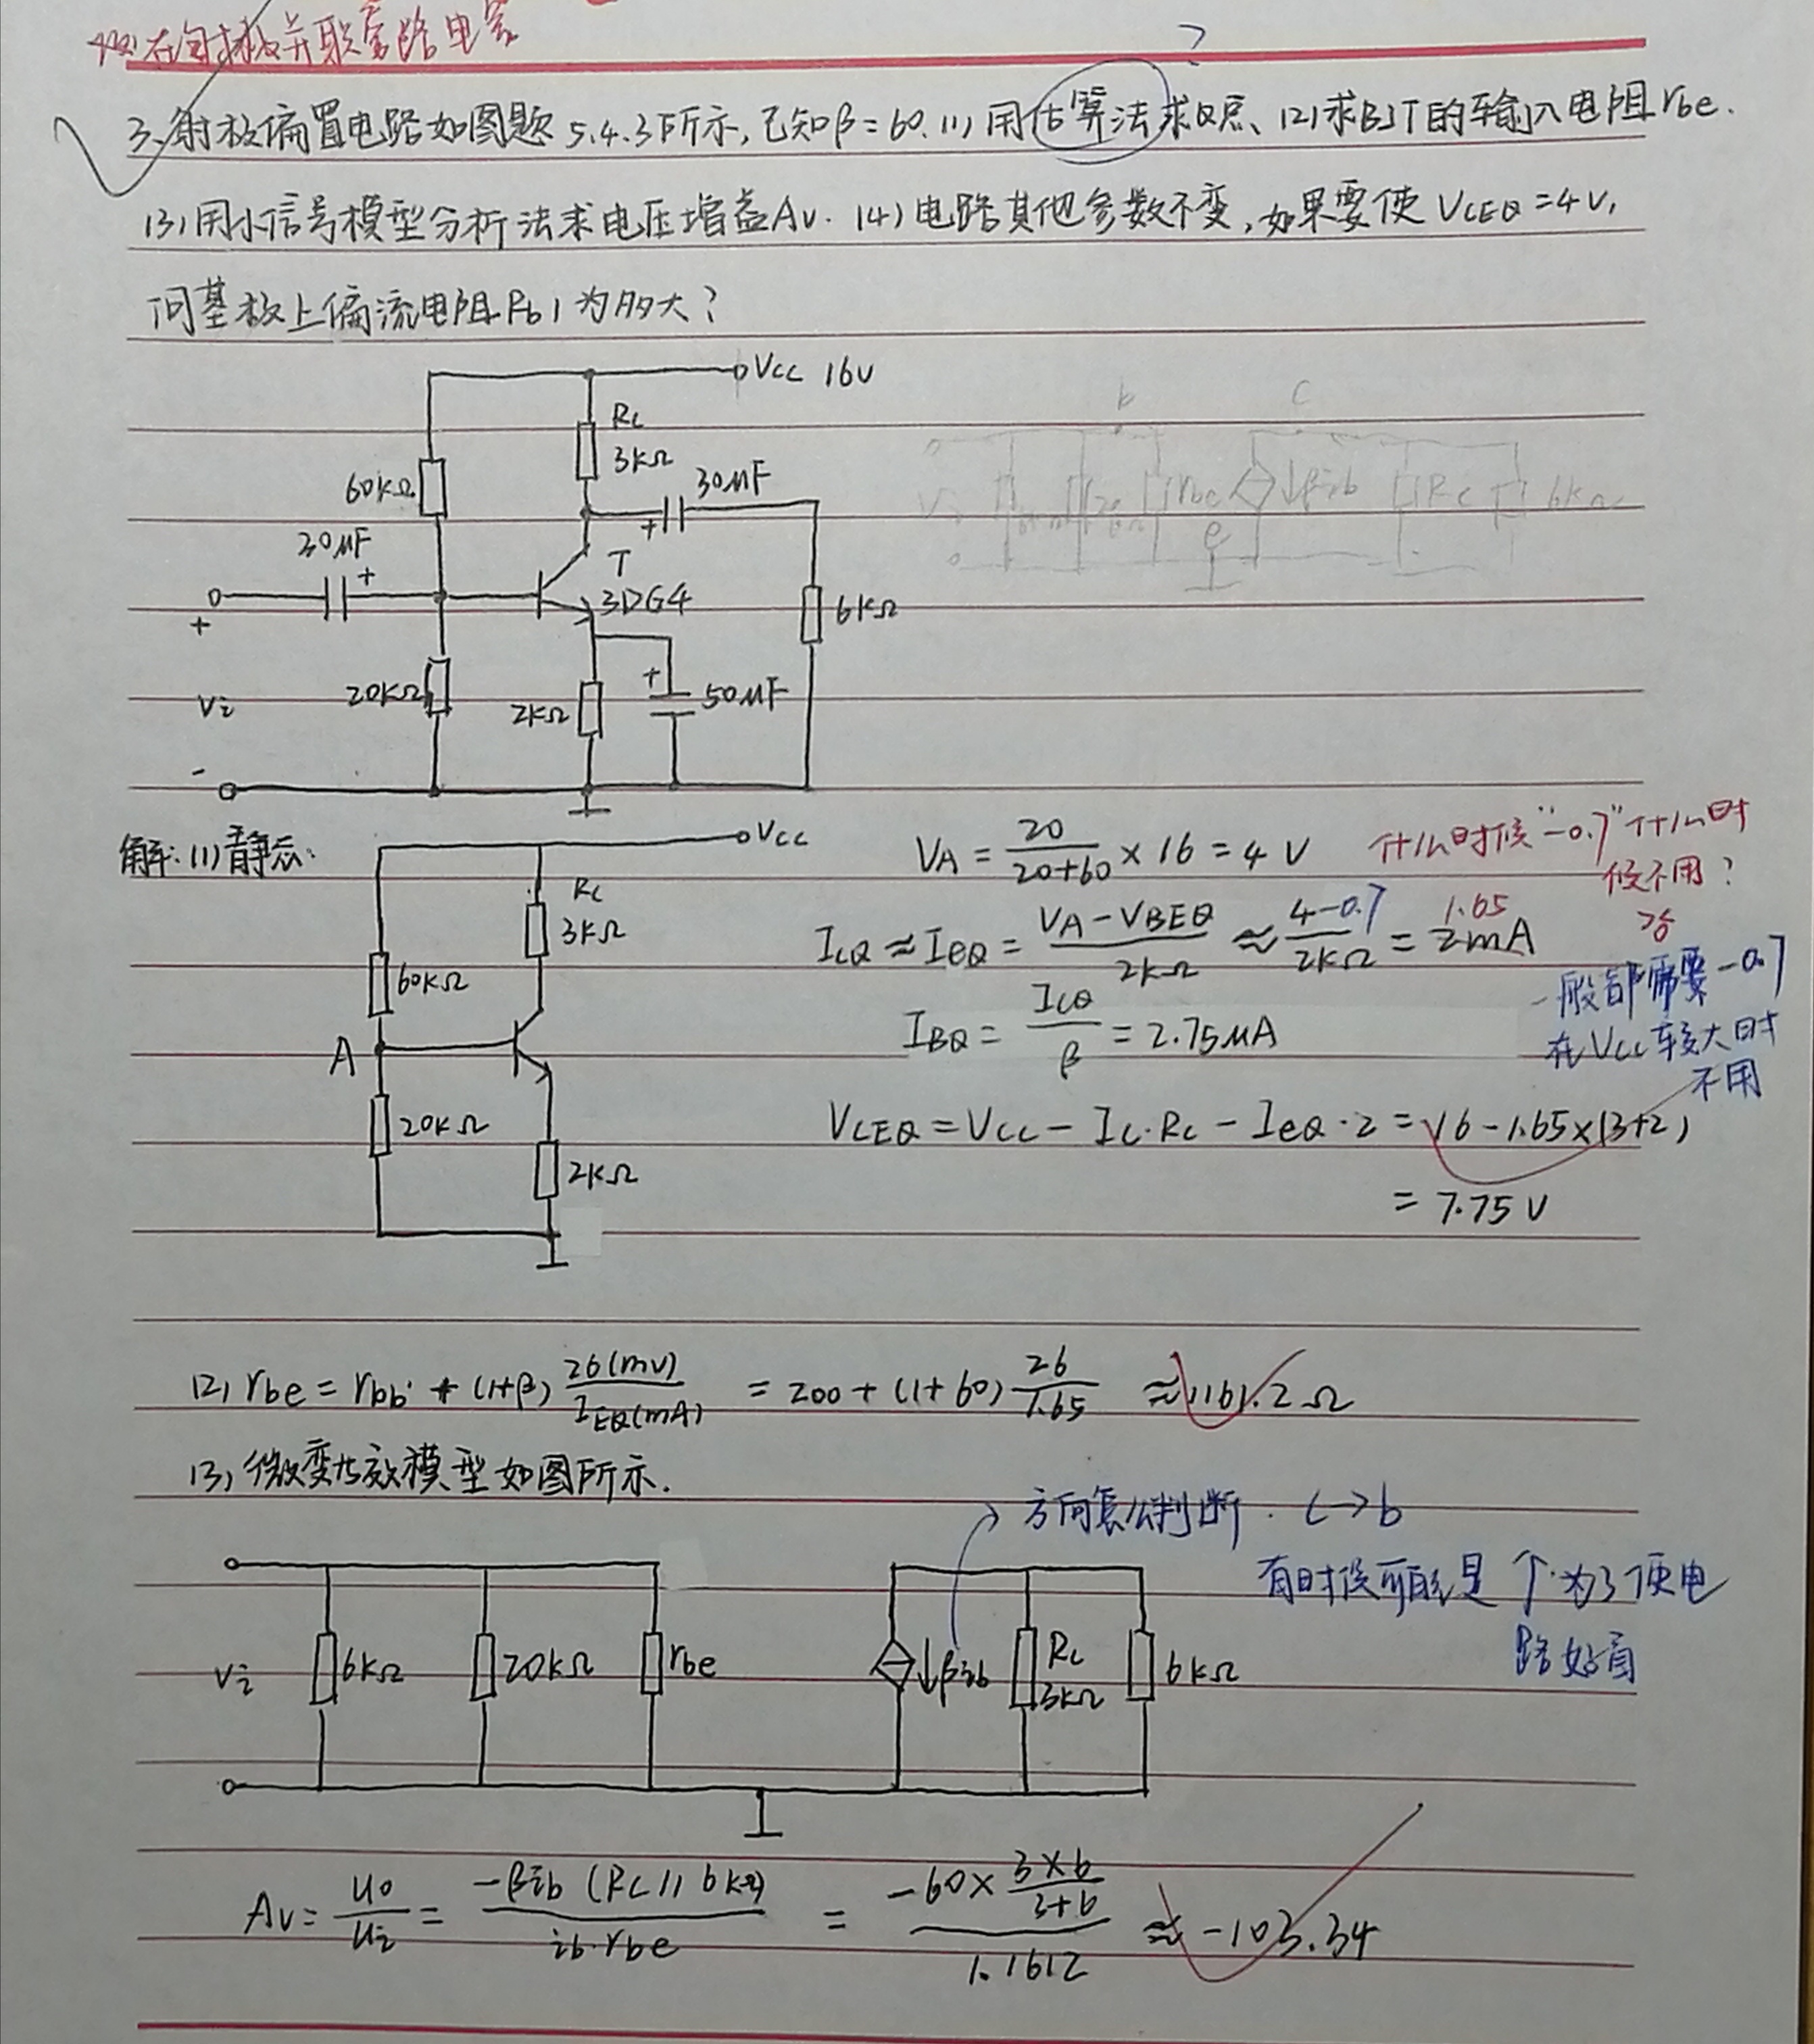 在射极并联旁路电容
?
3、射极偏置电路如图题5.4.3所示,已知β=60.(1)用估算法求Q点、(2)求BJT的输入电阻rbe.
(3)用小信号模型分析法求电压增益Av. (4)电路其他参数不变,如果要使VCEQ=4V,
问基极上偏流电阻Rb1为多大?
VCC 16V
RC
3KΩ
60KΩ
30μF
30μF
+
+
T
3DG4
6KΩ
+
Vi
-
20KΩ
2KΩ
+
50μF
b
c
rbe
↓βib
RC
6kΩ
e
解:(1)静态:
VCC
RC
3KΩ
60KΩ
A
20KΩ
2KΩ
VA = 20/(20+60) × 16 = 4 V
什么时候"-0.7"什么时
候不用?
ICQ ≈ IEQ = (VA-VBEQ)/2KΩ ≈ (4-0.7)/2KΩ = 2mA
1.65
一般都需要-0.7
在VCC较大时
不用
IBQ = ICQ/β = 2.75μA
VCEQ = VCC - IC·RC - IEQ·2 = 16-1.65×(3+2)
= 7.75 V
(2) rbe = rbb' + (1+β) 26(mV)/IEQ(mA) = 200 + (1+60) 26/1.65 ≈ 1161.2Ω
(3) 微变等效模型如图所示.
方向怎么判断. C→b
有时候可能是↑.为了使电
路好看
Vi
6KΩ
20KΩ
rbe
↓βib
RC
3KΩ
6KΩ
Av = uo/ui = -βib (RC // 6KΩ)/(ib·rbe) = (-60× (3×6)/(3+6))/1.1612 ≈ -103.34